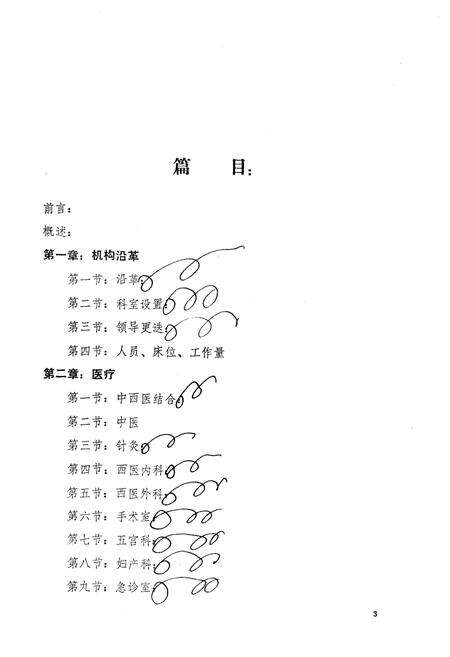 篇 目:
前言:
概述:
第一章: 机构沿革
第一节: 沿革:
第二节: 科室设置:
第三节: 领导更迭:
第四节: 人员、床位、工作量
第二章: 医疗
第一节: 中西医结合:
第二节: 中医
第三节: 针灸:
第四节: 西医内科:
第五节: 西医外科:
第六节: 手术室:
第七节: 五官科:
第八节: 妇产科:
第九节: 急诊室:
3